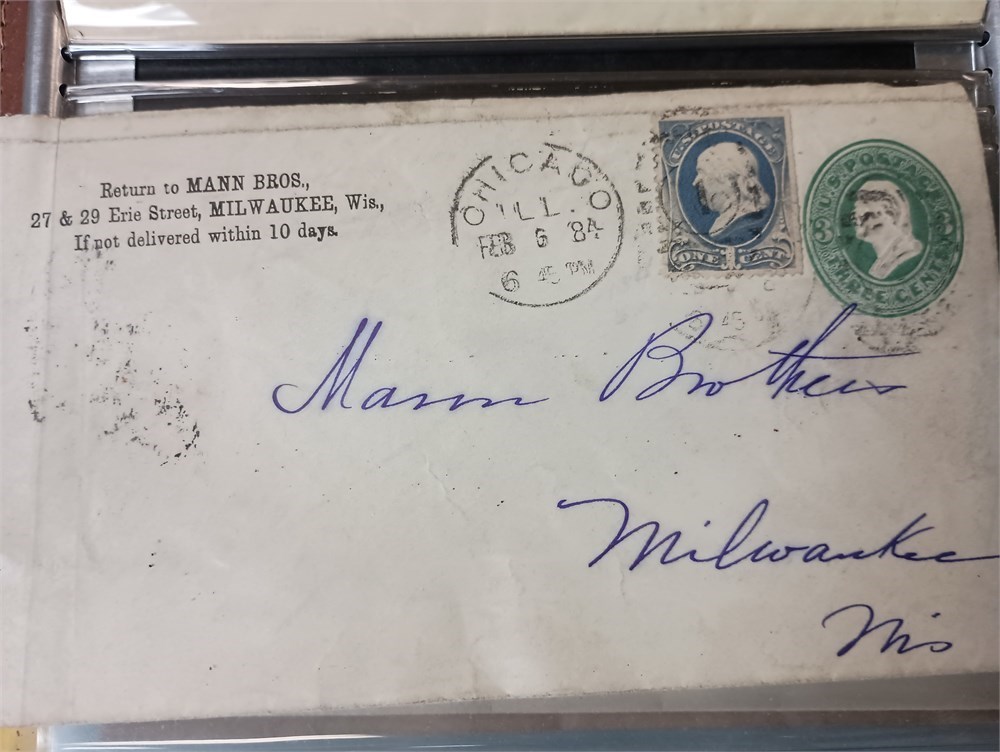 Return to MANN BROS.,
27 & 29 Erie Street, MILWAUKEE, Wis.,
If not delivered within 10 days.
CHICAGO
ILL.
FEB 6 84
6 45 PM
U.S. POSTAGE
ONE 1 CENT
U.S. POSTAGE
3
THREE CENTS
45
Mann Brothers
Milwaukee
Wis